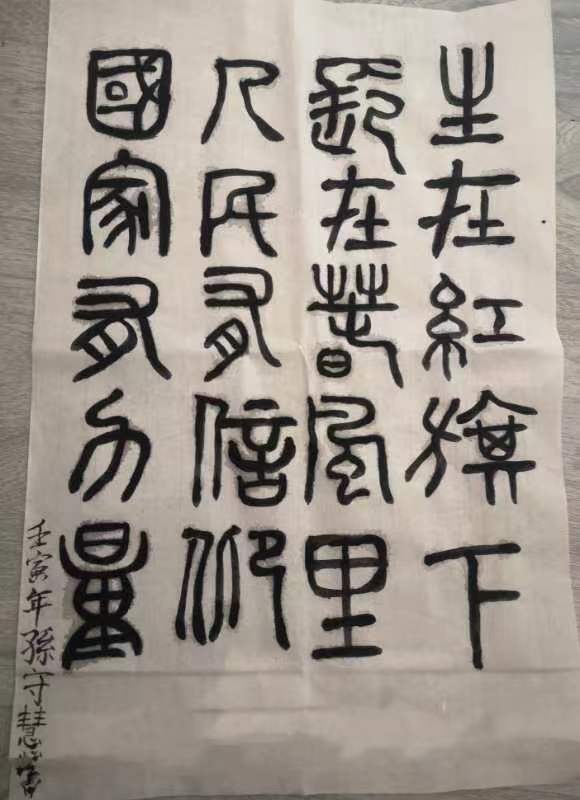 生在紅旗下
在春風里
人民有信仰
國家有力量
壬寅年孫守慧書